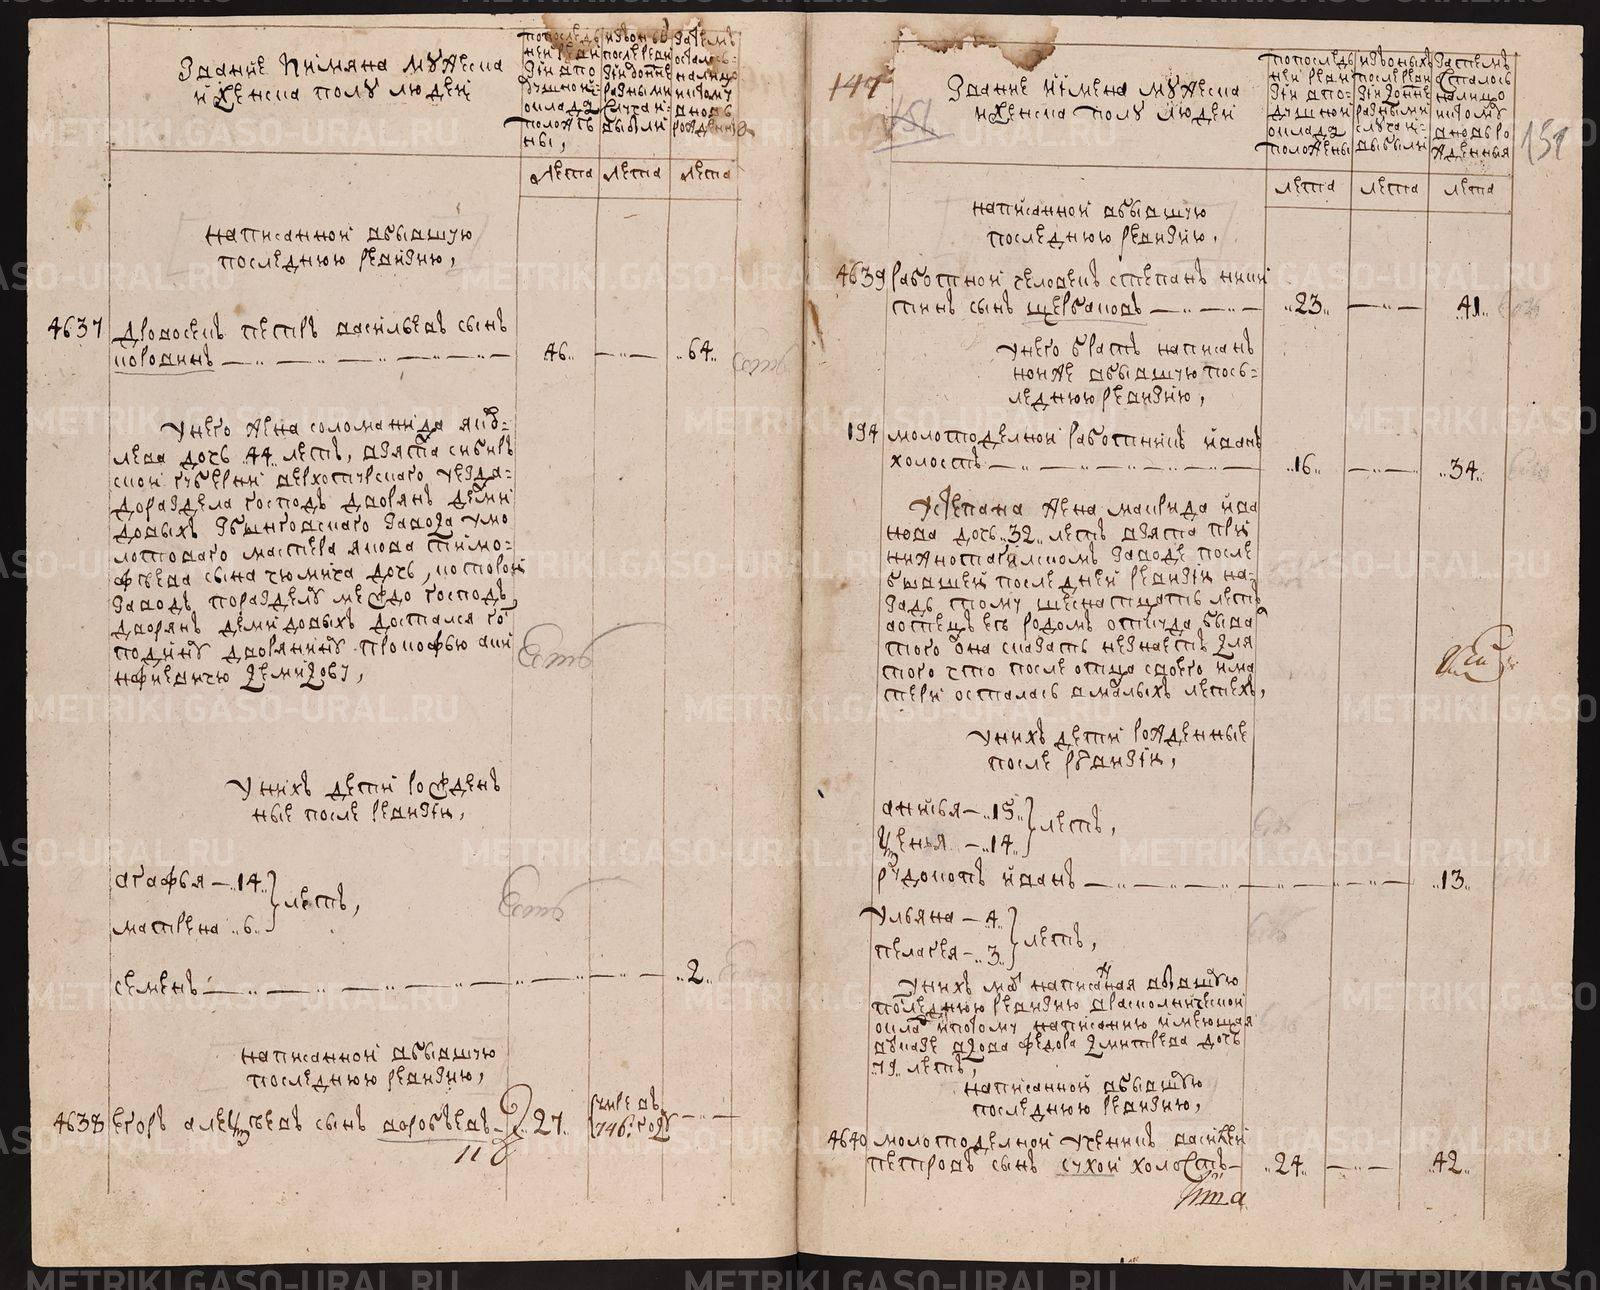 METRIKI.GASO-URAL.RU
Звание и имяна мужеска
и женска полу людей
попоследь
ней реви
зии впо
душной
окладъ
положе
ны,
извоныхъ
последней
зии до ныне
разными
случаи
выбыли
затемъ
осталось
налицо
и потому
вновь
рожденныя
лета лета лета
написанной вбывшую
последнюю ревизию,
4637 дровосекъ петръ васильевъ сынъ
коровинъ 46. 64.
Унего жена соломанида яков=
лева дочь 44 летъ, взята сибирь
ской губернии верхотурского уезда
дораздела господъ дворянъ деми
довыхъ Бынговского завода умо
лотоваго мастера якова тимо=
феева сына дочь, которой
заводъ поразделу между господъ
дворянъ демидовыхъ достался го
подину дворянину прокофью акин
нфиевичю демидову,
Унихъ дети рожден
ные после ревизии,
агафья — 14
матрена 6
летъ,
семенъ 2.
написанной вбывшую
последнюю ревизию,
4638 егоръ алексеевъ сынъ воробьевъ 27. умре въ
746. году
147
151
151
Звание и имена мужеска
и женска полу людей
попоследь
ней реви
зии впо=
душной
окладъ
положены
извоныхъ
последней
зии до ныне
разными
случаи=
выбыли
Затемъ
осталось
налицо
и потому
вновь ро
жденныя
лета лета лета
написанной вбывшую
последнюю ревизию,
4639 работной человекъ степанъ ники
тинъ сынъ щербаковъ 23. 41.
Унего братъ написан
ной же вбывшую пось=
леднюю ревизию,
194 молотоделной работникъ иванъ
холостъ 16. 34.
Устепана жена маврида ива
нова дочь 32 летъ взята при
нижнотагилскомъ заводе после
бывшей последней ревизии на=
задъ тому шеснатцать летъ
аотецъ ея родомъ откуда быва
того она сказать незнаетъ для
того что после отца своего има
тери осталась вмалыхъ летехъ,
Унихъ дети рожденные
после ревизии,
анисья — 15
ксенья — 14
летъ,
рудокопъ иванъ 13.
Ульяна — 4
пелагея — 3
летъ,
Унихъ мать написанная вбывшую
последнюю ревизию враскольнической
окладъ и потому написанию имеющая
вуказе вдова федора дмитрева дочь
79 летъ,
написанной вбывшую
последнюю ревизию,
4640 молотоделной ученикъ василей
петровъ сынъ сухой холостъ 24. 42.